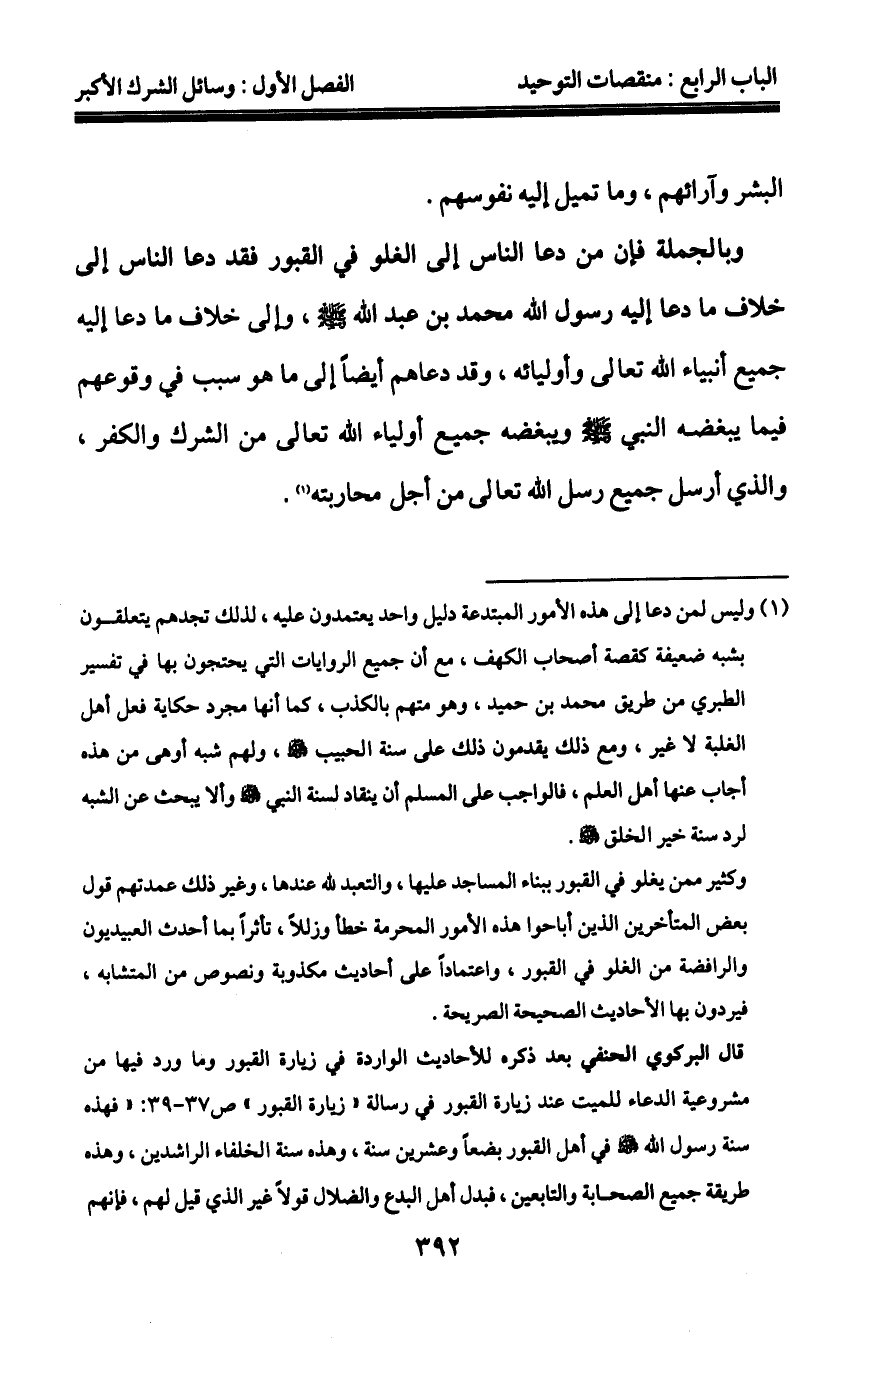 الباب الرابع : منقصات التوحيد الفصل الأول : وسائل الشرك الأكبر
البشر وآرائهم ، وما تميل إليه نفوسهم .
وبالجملة فإن من دعا الناس إلى الغلو في القبور فقد دعا الناس إلى
خلاف ما دعا إليه رسول الله محمد بن عبد الله ﷺ ، وإلى خلاف ما دعا إليه
جميع أنبياء الله تعالى وأوليائه ، وقد دعاهم أيضاً إلى ما هو سبب في وقوعهم
فيما يبغضه النبي ﷺ ويبغضه جميع أولياء الله تعالى من الشرك والكفر ،
والذي أرسل جميع رسل الله تعالى من أجل محاربته(١) .
(١) وليس لمن دعا إلى هذه الأمور المبتدعة دليل واحد يعتمدون عليه ، لذلك تجدهم يتعلقـون
بشبه ضعيفة كقصة أصحاب الكهف ، مع أن جميع الروايات التي يحتجون بها في تفسير
الطبري من طريق محمد بن حميد ، وهو متهم بالكذب ، كما أنها مجرد حكاية فعل أهل
الغلبة لا غير ، ومع ذلك يقدمون ذلك على سنة الحبيب ﷺ ، ولهم شبه أوهى من هذه
أجاب عنها أهل العلم ، فالواجب على المسلم أن ينقاد لسنة النبي ﷺ وألا يبحث عن الشبه
لرد سنة خير الخلق ﷺ .
وكثير ممن يغلو في القبور ببناء المساجد عليها ، والتعبد لله عندها ، وغير ذلك عمدتهم قول
بعض المتأخرين الذين أباحوا هذه الأمور المحرمة خطأ وزللاً ، تأثراً بما أحدث العبيديون
والرافضة من الغلو في القبور ، واعتماداً على أحاديث مكذوبة ونصوص من المتشابه ،
فيردون بها الأحاديث الصحيحة الصريحة .
قال البركوي الحنفي بعد ذكره للأحاديث الواردة في زيارة القبور وما ورد فيها من
مشروعية الدعاء للميت عند زيارة القبور في رسالة « زيارة القبور » ص٣٧-٣٩: « فهذه
سنة رسول الله ﷺ في أهل القبور بضعاً وعشرين سنة ، وهذه سنة الخلفاء الراشدين ، وهذه
طريقة جميع الصحابة والتابعين ، فبدل أهل البدع والضلال قولاً غير الذي قيل لهم ، فإنهم
٣٩٢